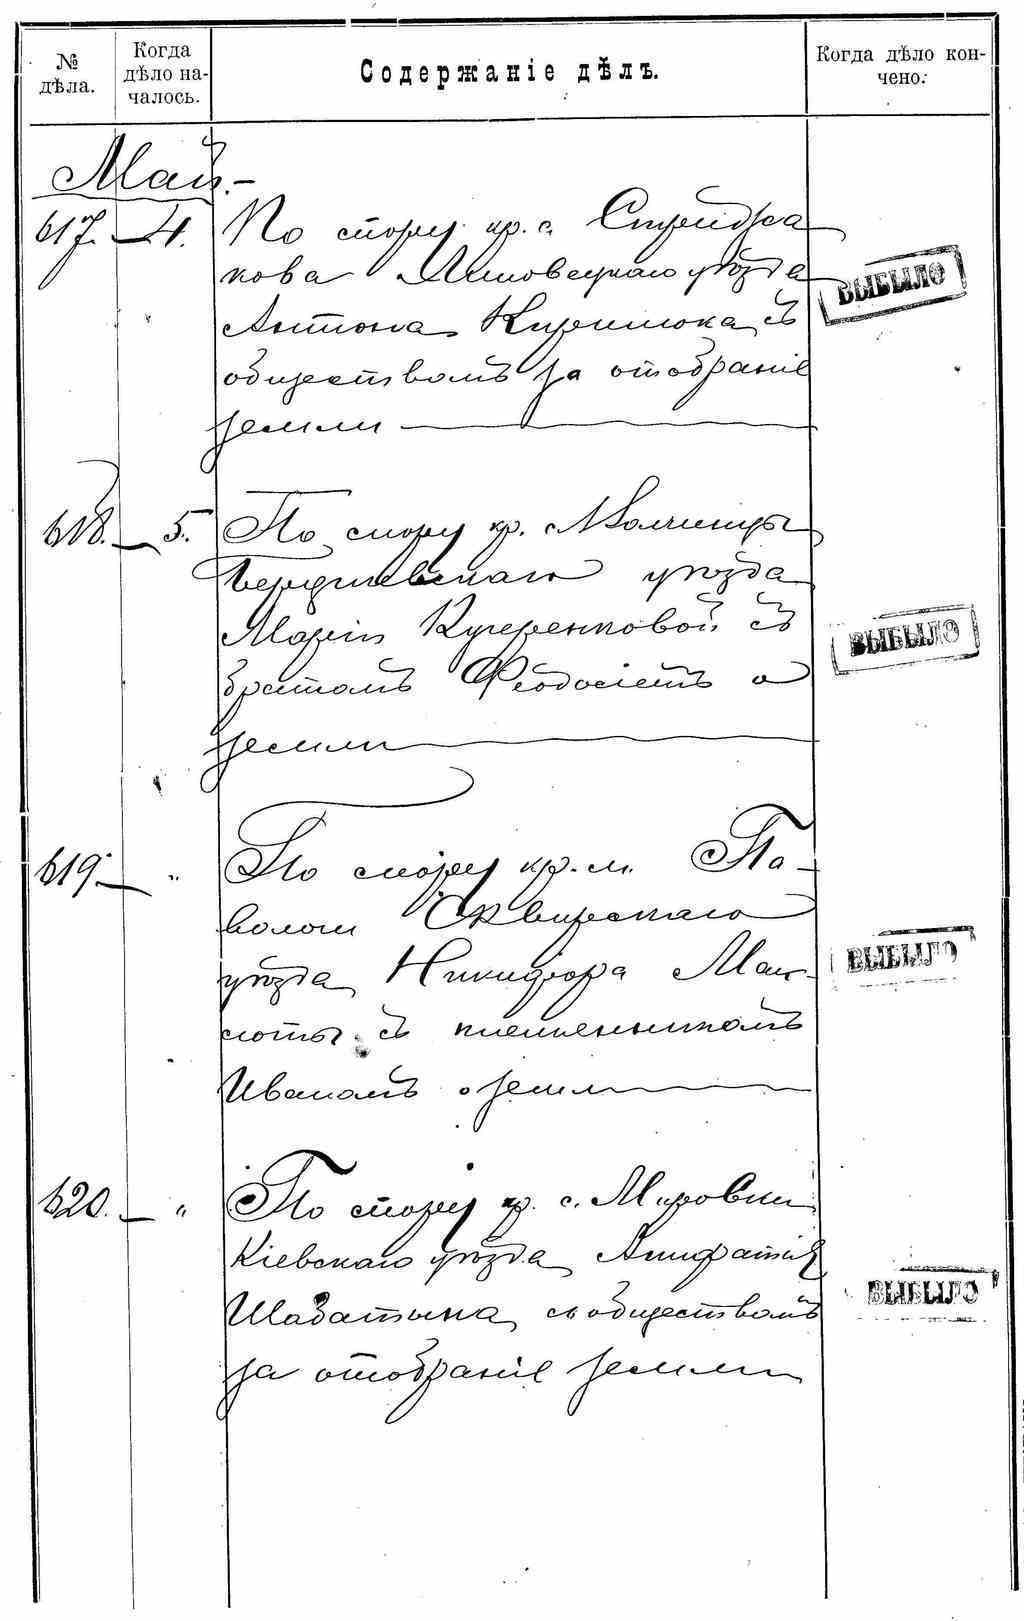 № дѣла.
Когда дѣло началось.
Содержаніе дѣлъ.
Когда дѣло кончено.
Май.-
617. 4. По спору кр. с.
кова Липовецкаго уѣзда
ВЫБЫЛО
Антона съ
обществомъ за отобраніе
земли
618. 5. По спору кр.
Бердичевскаго уѣзда
Маріи Кучеренковой съ
ВЫБЫЛО
братомъ Феодосіемъ о
земли
619 " По спору кр. м. Па-
волочи Сквирскаго
уѣзда Никифора Мак-
ВЫБЫЛО
сюты съ племянникомъ
Иваномъ о земл
620. " По спору кр. с. Мировки
Кіевскаго уѣзда
ВЫБЫЛО
съ обществомъ
за отобраніе земли